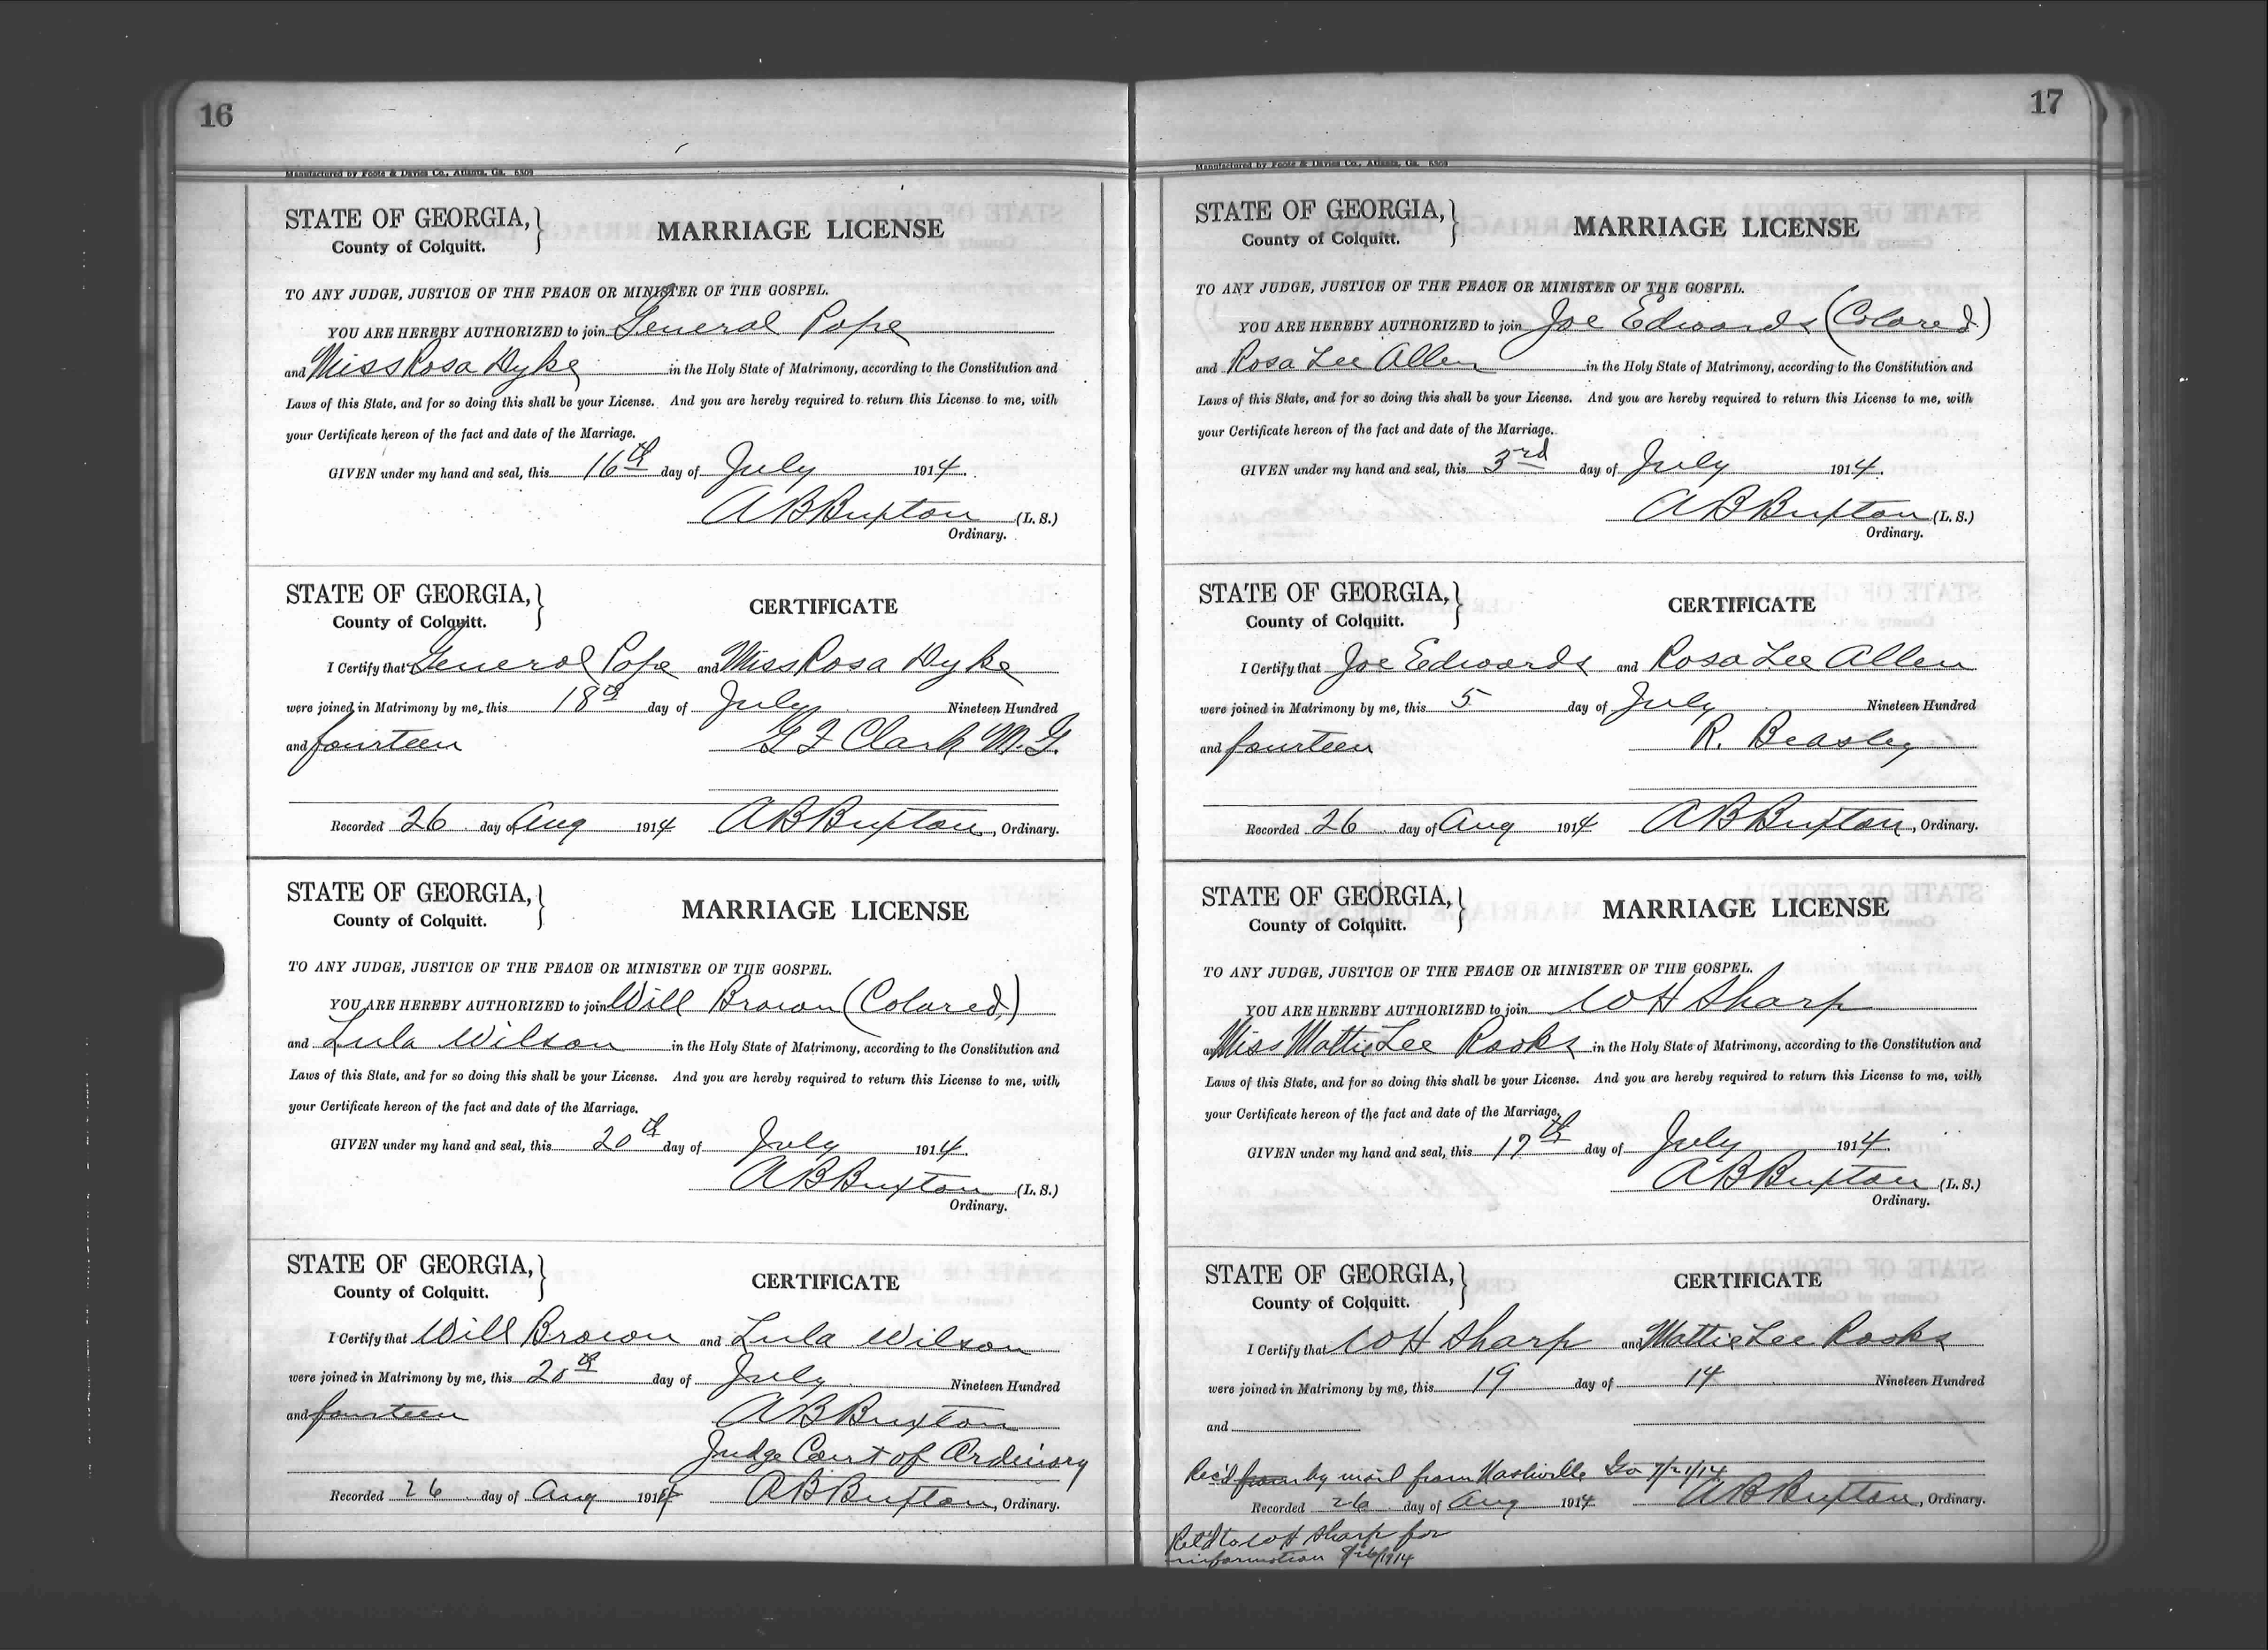 16
Manufactured by Foote & Davies Co., Atlanta, Ga. 6309
STATE OF GEORGIA,
County of Colquitt.
MARRIAGE LICENSE
TO ANY JUDGE, JUSTICE OF THE PEACE OR MINISTER OF THE GOSPEL.
YOU ARE HEREBY AUTHORIZED to join General Pope
and Miss Rosa Dyke in the Holy State of Matrimony, according to the Constitution and
Laws of this State, and for so doing this shall be your License. And you are hereby required to return this License to me, with
your Certificate hereon of the fact and date of the Marriage.
GIVEN under my hand and seal, this 16th day of July 1914.
A B Buxton (L. S.)
Ordinary.
STATE OF GEORGIA,
County of Colquitt.
CERTIFICATE
I Certify that General Pope and Miss Rosa Dyke
were joined in Matrimony by me, this 18th day of July Nineteen Hundred
and fourteen G F Clark M.G.
Recorded 26 day of Aug 1914 A B Buxton, Ordinary.
STATE OF GEORGIA,
County of Colquitt.
MARRIAGE LICENSE
TO ANY JUDGE, JUSTICE OF THE PEACE OR MINISTER OF THE GOSPEL.
YOU ARE HEREBY AUTHORIZED to join Will Brown (Colored)
and Lula Wilson in the Holy State of Matrimony, according to the Constitution and
Laws of this State, and for so doing this shall be your License. And you are hereby required to return this License to me, with
your Certificate hereon of the fact and date of the Marriage.
GIVEN under my hand and seal, this 20th day of July 1914.
A B Buxton (L. S.)
Ordinary.
STATE OF GEORGIA,
County of Colquitt.
CERTIFICATE
I Certify that Will Brown and Lula Wilson
were joined in Matrimony by me, this 20th day of July Nineteen Hundred
and fourteen A B Buxton
Judge Court of Ordinary
Recorded 26 day of Aug 1914 A B Buxton, Ordinary.
17
Manufactured by Foote & Davies Co., Atlanta, Ga. 6309
STATE OF GEORGIA,
County of Colquitt.
MARRIAGE LICENSE
TO ANY JUDGE, JUSTICE OF THE PEACE OR MINISTER OF THE GOSPEL.
YOU ARE HEREBY AUTHORIZED to join Joe Edwards (Colored)
and Rosa Lee Allen in the Holy State of Matrimony, according to the Constitution and
Laws of this State, and for so doing this shall be your License. And you are hereby required to return this License to me, with
your Certificate hereon of the fact and date of the Marriage.
GIVEN under my hand and seal, this 3rd day of July 1914.
A B Buxton (L. S.)
Ordinary.
STATE OF GEORGIA,
County of Colquitt.
CERTIFICATE
I Certify that Joe Edwards and Rosa Lee Allen
were joined in Matrimony by me, this 5 day of July Nineteen Hundred
and fourteen R. Beasley
Recorded 26 day of Aug 1914 A B Buxton, Ordinary.
STATE OF GEORGIA,
County of Colquitt.
MARRIAGE LICENSE
TO ANY JUDGE, JUSTICE OF THE PEACE OR MINISTER OF THE GOSPEL.
YOU ARE HEREBY AUTHORIZED to join W H Sharp
and Miss Mattie Lee Rooks in the Holy State of Matrimony, according to the Constitution and
Laws of this State, and for so doing this shall be your License. And you are hereby required to return this License to me, with
your Certificate hereon of the fact and date of the Marriage.
GIVEN under my hand and seal, this 17th day of July 1914.
A B Buxton (L. S.)
Ordinary.
STATE OF GEORGIA,
County of Colquitt.
CERTIFICATE
I Certify that W H Sharp and Mattie Lee Rooks
were joined in Matrimony by me, this 19 day of 14 Nineteen Hundred
and
Rec'd from by mail from Nashville Ga 7/21/14
Recorded 26 day of Aug 1914 A B Buxton, Ordinary.
Ret'd to W H Sharp for
information 8/26/1914